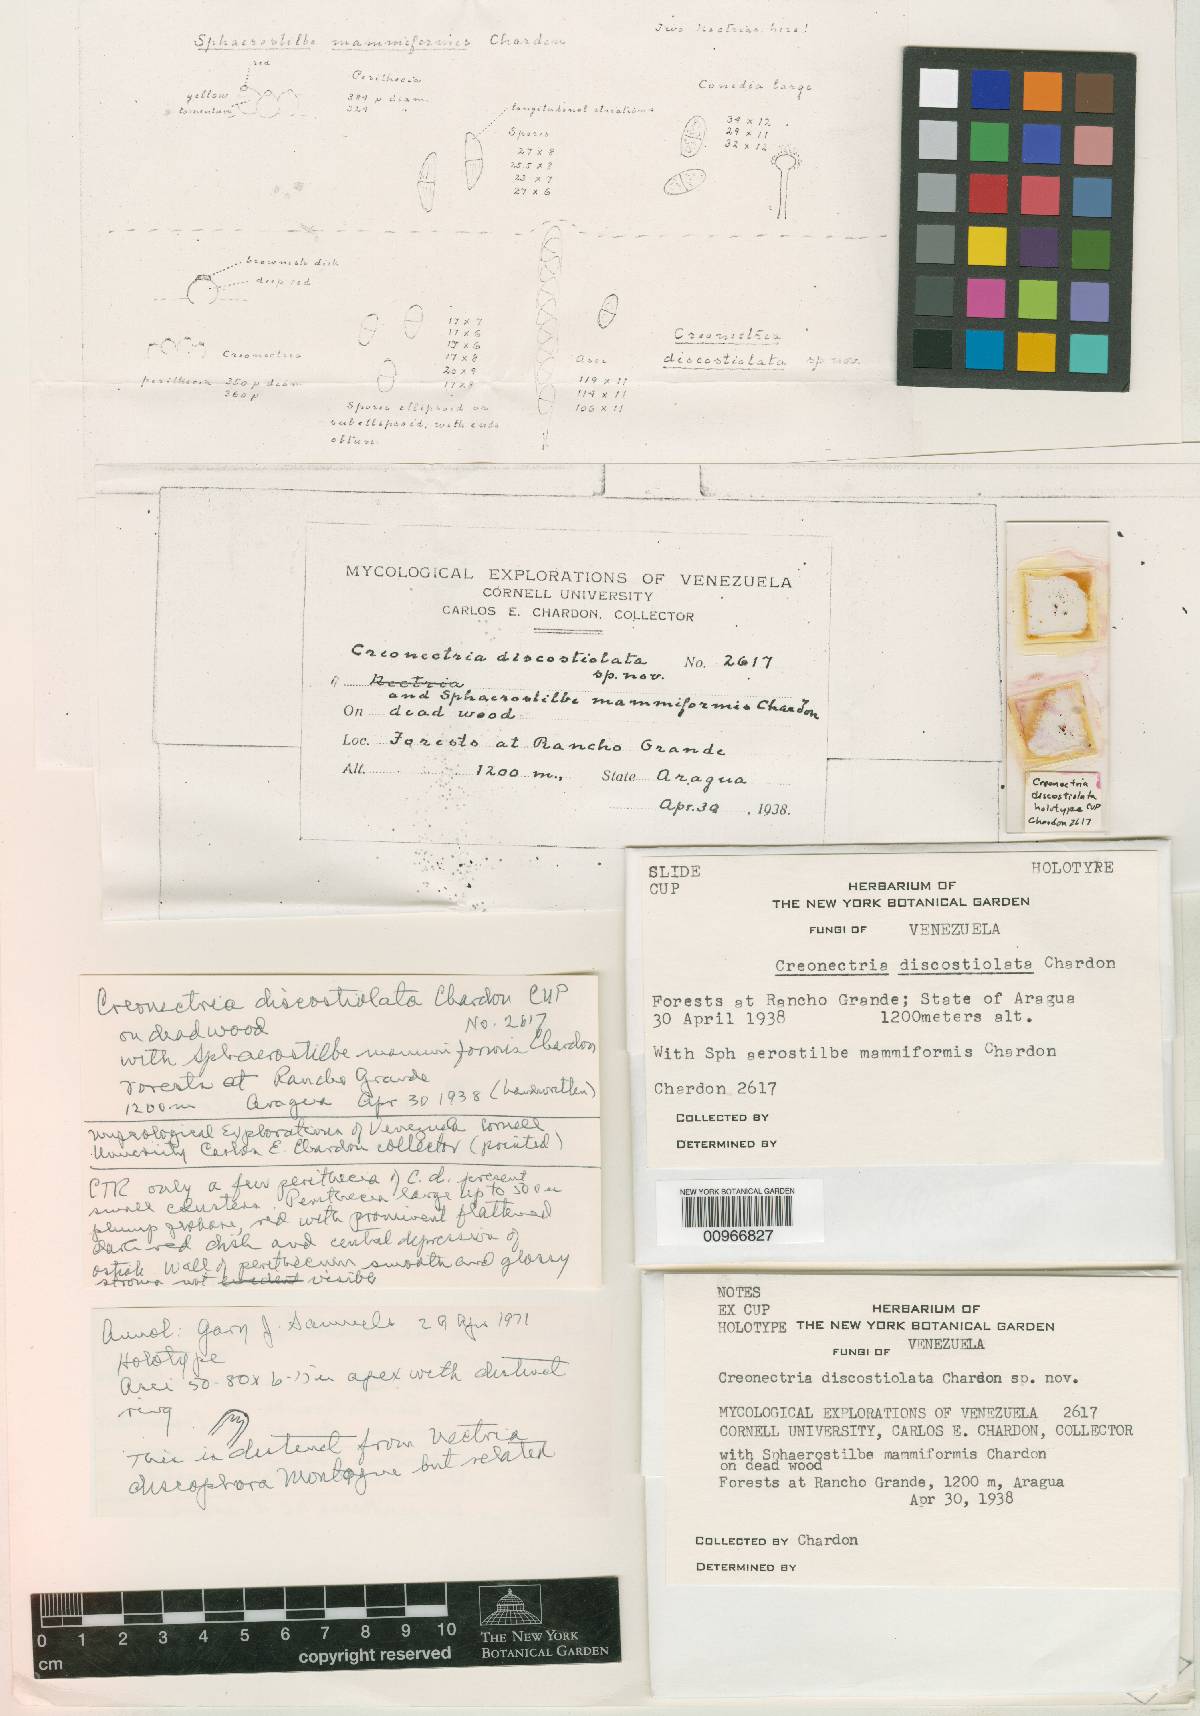 Sphaerostilbe mammiformis Chardon
Two Nectrias here!
red
yellow
tomentum
Perithecia
384 µ diam.
324 "
longitudinal striations
Spores
27 x 8
25.5 x 8
23 x 7
27 x 6
Conidia large
34 x 12
29 x 11
32 x 12
brownish disk
deep red
Creonectria
perithecia 350 µ diam
360 µ
17 x 7
17 x 6
17 x 8
20 x 9
17 x 8
Spores ellipsoid or
subellipsoid, with ends
obtuse
Asci
119 x 11
114 x 11
106 x 11
Creonectria
discostiolata sp nov.
MYCOLOGICAL EXPLORATIONS OF VENEZUELA
CORNELL UNIVERSITY
CARLOS E. CHARDON, COLLECTOR
Creonectria discostiolata No. 2617
sp. nov.
Nectria
and Sphaerostilbe mammiformis Chardon
On dead wood
Loc. Forests at Rancho Grande
Alt. 1200 m., State Aragua
Apr. 30, 1938.
Creonectria
discostiolata
holotype CUP
Chardon 2617
SLIDE HOLOTYPE
CUP
HERBARIUM OF
THE NEW YORK BOTANICAL GARDEN
FUNGI OF VENEZUELA
Creonectria discostiolata Chardon
Forests at Rancho Grande; State of Aragua
30 April 1938 1200meters alt.
With Sph aerostilbe mammiformis Chardon
Chardon 2617
COLLECTED BY
DETERMINED BY
NEW YORK BOTANICAL GARDEN
00966827
Creonectria discostiolata Chardon CUP
on dead wood No. 2617
with Sphaerostilbe mammiformis Chardon
Forests at Rancho Grande
1200 m Aragua Apr 30 1938 (handwritten)
Mycological Explorations of Venezuela Cornell
University Carlos E. Chardon collector (printed)
CTR only a few perithecia of C. d. present
small clusters. Perithecia large up to 500 u
plump globose, red with prominent flattened
dark red disk and central depression of
ostiole Wall of perithecium smooth and glossy
stroma not evident visible
Annot: Gary J. Samuels 29 Apr 1971
Holotype
Asci 50-80 x 6-11 u apex with distinct
ring
This is distinct from Nectria
discophora Montagne but related
NOTES
EX CUP
HOLOTYPE
HERBARIUM OF
THE NEW YORK BOTANICAL GARDEN
FUNGI OF VENEZUELA
Creonectria discostiolata Chardon sp. nov.
MYCOLOGICAL EXPLORATIONS OF VENEZUELA 2617
CORNELL UNIVERSITY, CARLOS E. CHARDON, COLLECTOR
with Sphaerostilbe mammiformis Chardon
on dead wood
Forests at Rancho Grande, 1200 m, Aragua
Apr 30, 1938
COLLECTED BY Chardon
DETERMINED BY
0 1 2 3 4 5 6 7 8 9 10
cm
copyright reserved
THE NEW YORK
BOTANICAL GARDEN